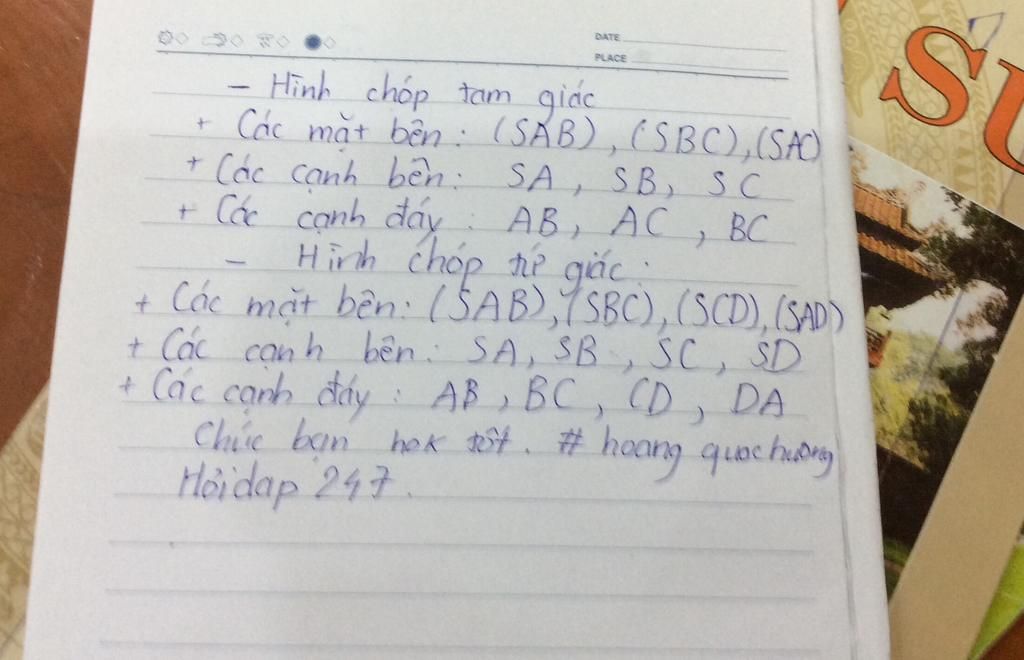 DATE
PLACE
- Hình chóp tam giác
+ Các mặt bên : (SAB), (SBC), (SAC)
+ Các cạnh bên: SA, SB, SC
+ Các cạnh đáy : AB, AC, BC
- Hình chóp tứ giác.
+ Các mặt bên: (SAB), (SBC), (SCD), (SAD)
+ Các cạnh bên: SA, SB, SC, SD
+ Các cạnh đáy : AB, BC, CD, DA
Chúc bạn hok tốt. # hoang quochuong
Hỏidap 247.
SU